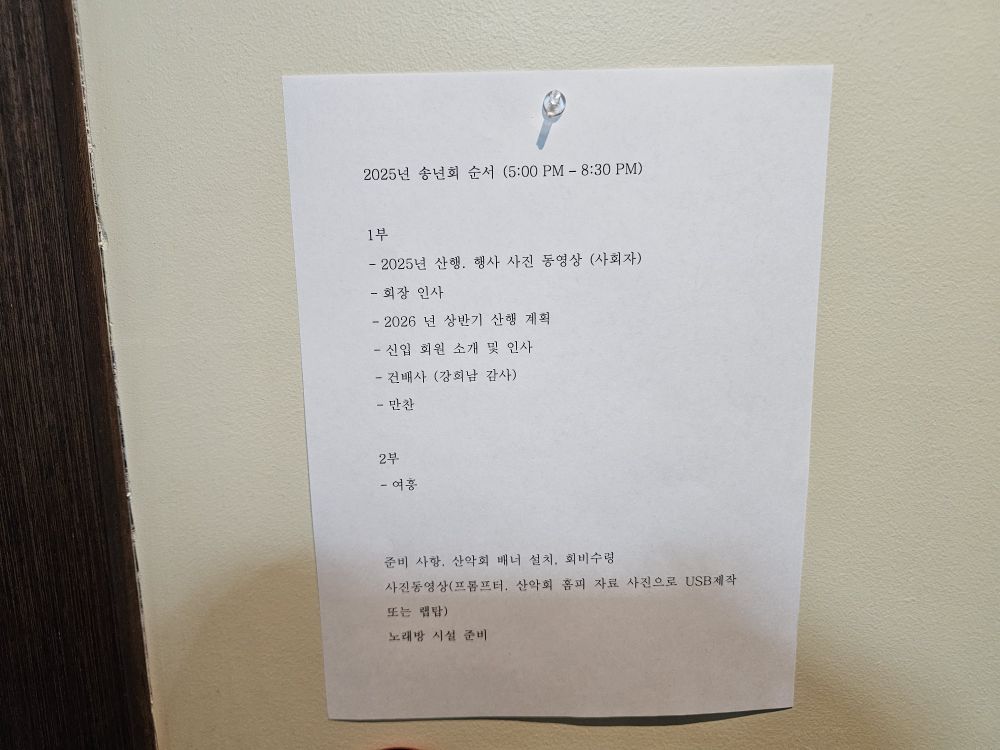 2025년 송년회 순서 (5:00 PM – 8:30 PM)
1부
- 2025년 산행. 행사 사진 동영상 (사회자)
- 회장 인사
- 2026 년 상반기 산행 계획
- 신입 회원 소개 및 인사
- 건배사 (강희남 감사)
- 만찬
2부
- 여흥
준비 사항. 산악회 배너 설치, 회비수령
사진동영상(프롬프터. 산악회 홈피 자료 사진으로 USB제작
또는 랩탑)
노래방 시설 준비